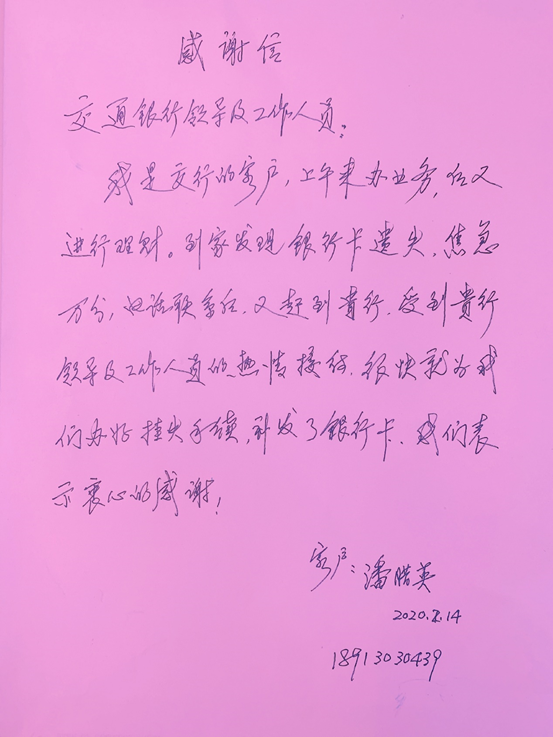 感谢信
交通银行领导及工作人员：
我是交行的客户，上午来办业务，后又
进行理财。到家发现银行卡遗失，焦急
万分，电话联系后，又赶到貴行，受到貴行
领导及工作人员的热情接待，很快就为我
们办好挂失手续，补发了银行卡，我们表
示衷心的感谢！
客户：潘腊英
2020.7.14
18913030439